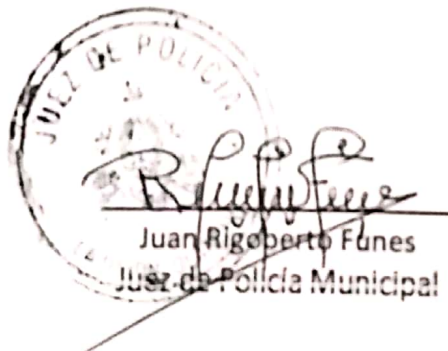 JUEZ DE POLICIA
Juan Rigoberto Funes
Juez de Policía Municipal